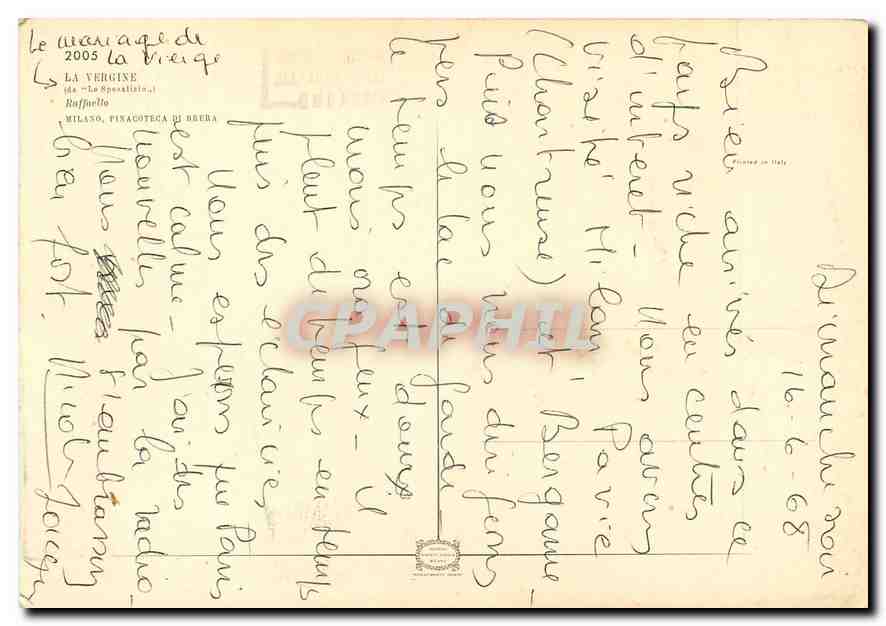 Le mariage de
la vierge
2005
LA VERGINE
(da "Lo Sposalizio„)
Raffaello
MILANO, PINACOTECA DI BRERA
Printed in Italy
CPAPHIL
Dimanche soir
16-6-68
Bien arrivés dans ce
pays riche en centres
d'intérêt - Nous avons
visité Milan, Pavie
(Chartreuse) et Bergame
Puis nous nous dirigeons
vers le lac de Garde
Le temps est doux
mais orageux - il
pleut de temps en temps
puis des éclaircies
Nous espérons que Paris
est calme - J'ai des
nouvelles par la radio
Nous t'embrassons
bien fort.